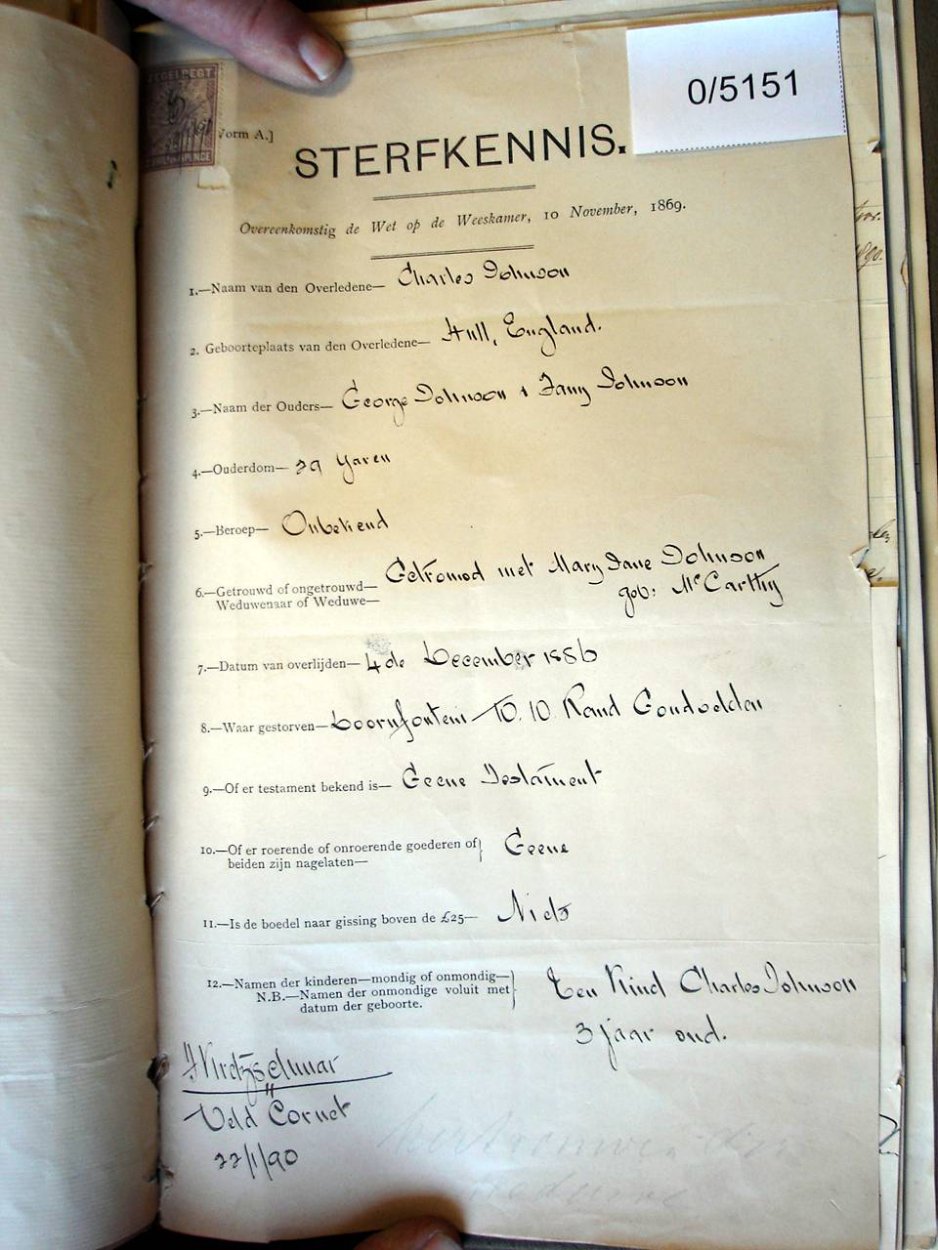 0/5151
ZEGELREGT
Form A.]
STERFKENNIS.
Overeenkomstig de Wet op de Weeskamer, 10 November, 1869.
1.—Naam van den Overledene— Charles Johnson
2. Geboorteplaats van den Overledene— Hull, England.
3.—Naam der Ouders— George Johnson & Fany Johnson
4.—Ouderdom— 29 Yaren
5.—Beroep— Onbekend
6.—Getrouwd of ongetrouwd— Getrouwd met Mary Jane Johnson
Weduwenaar of Weduwe— geb: McCarthy
7.—Datum van overlijden— 4de December 1886
8.—Waar gestorven— Doornfontein No. 10 Rand Goudvelden
9.—Of er testament bekend is— Geene Testament
10.—Of er roerende of onroerende goederen of} Geene
beiden zijn nagelaten—
11.—Is de boedel naar gissing boven de £25— Niets
12.—Namen der kinderen—mondig of onmondig—} Een Kind Charles Johnson
N.B.—Namen der onmondige voluit met
datum der geboorte. 3 jaar oud.
Veld Cornet
22/1/90